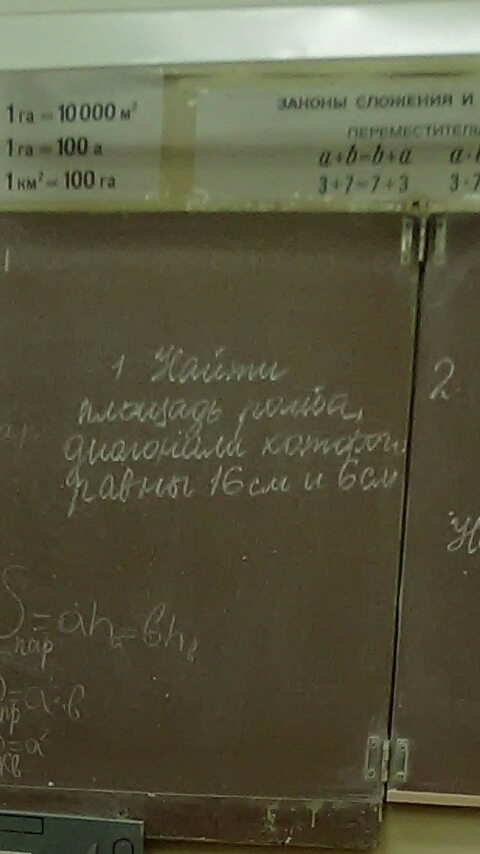 1 га = 10 000 м²
1 га = 100 а
1 км² = 100 га
ЗАКОНЫ СЛОЖЕНИЯ И
ПЕРЕМЕСТИТЕЛЬ
a+b=b+a
3+7=7+3
1 Найти
площадь ромба,
диагонали которого
равны 16 см и 6 см
2
S пар = ah a = bh b
пр = a·b
кв = a²